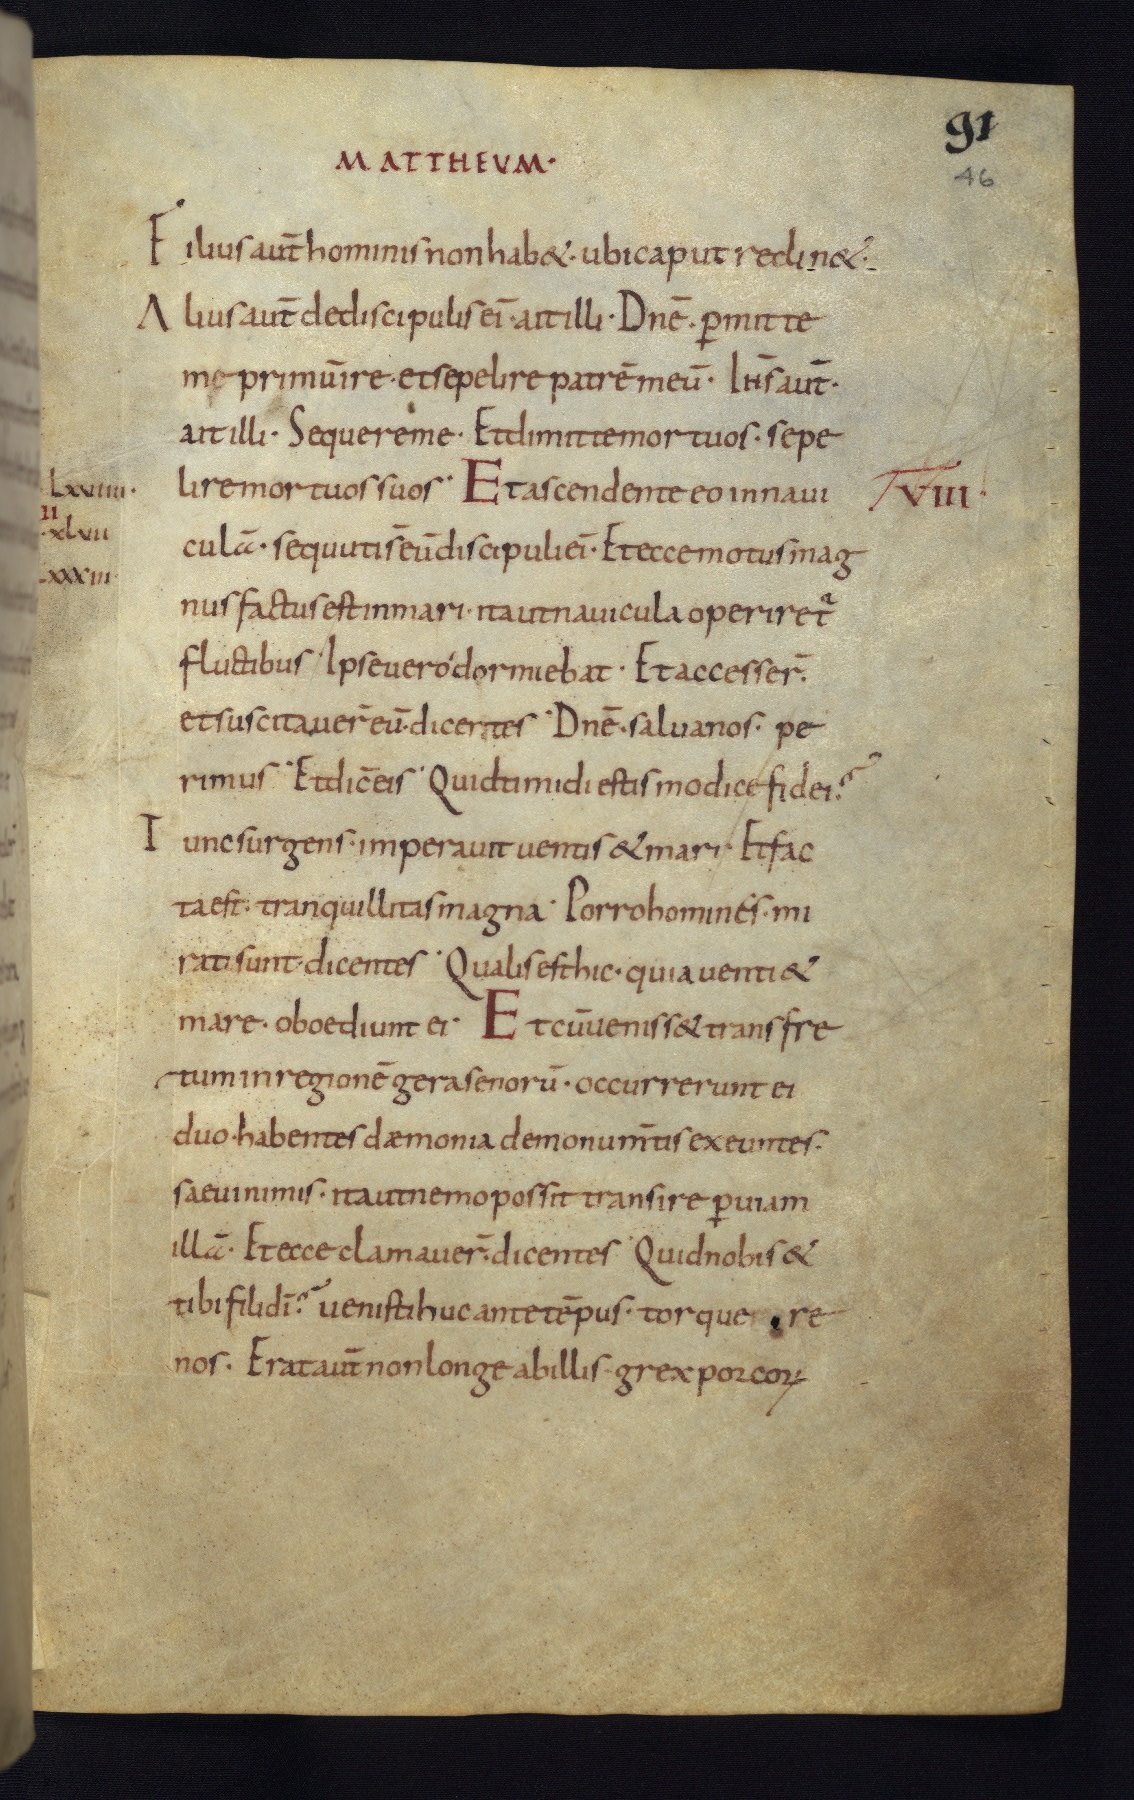 91
46
MATTHEVM·
Filius aut̄ hominis non hab&· ubi caput reclin&·
Alius aut̄ de discipulis ei̅· ait illi· Dn̄e· ꝑmitte
me primū ire· et sepelire patrē meū· Ih̄s aut̄·
ait illi· Sequere me· Et dimitte mortuos· sepe
lire mortuos suos· Et ascendente eo in naui
VIII·
·Lxxviiii·
II
·xlvii
Lxxxiii·
culā· sequuti s̄ eū discipuli ei̅· Et ecce motus mag
nus factus est in mari· ita ut nauicula operiret̄
fluctibus· Ipse uero dormiebat· Et accesser̄·
et suscitauer̄ eū· dicentes· Dn̄e· salua nos· pe
rimus· Et dic̄ eis· Quid timidi estis modice fidei?
Tunc surgens· imperauit uentis & mari· Et fac
ta est· tranquillitas magna· Porro homines· mi
rati sunt· dicentes· Qualis est hic· quia uenti &
mare· oboediunt ei· Et cū ueniss& trans fre
tum in regionē gerasenorū· occurrerunt ei
duo· habentes dæmonia de monum̄tis exeuntes·
saeui nimis· ita ut nemo possit transire ꝑ uiam
illā· Et ecce clamauer̄· dicentes· Quid nobis &
tibi fili dī? uenisti huc ante tēpus· torque re
nos· Erat aut̄ non longe ab illis· grex porcoꝝ